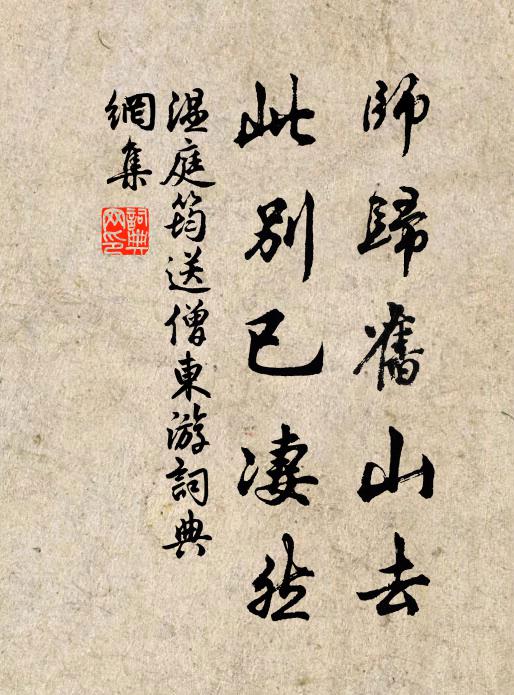 師歸舊山去
此別已凄然
温庭筠送僧東游詞典
網集
詞典網印